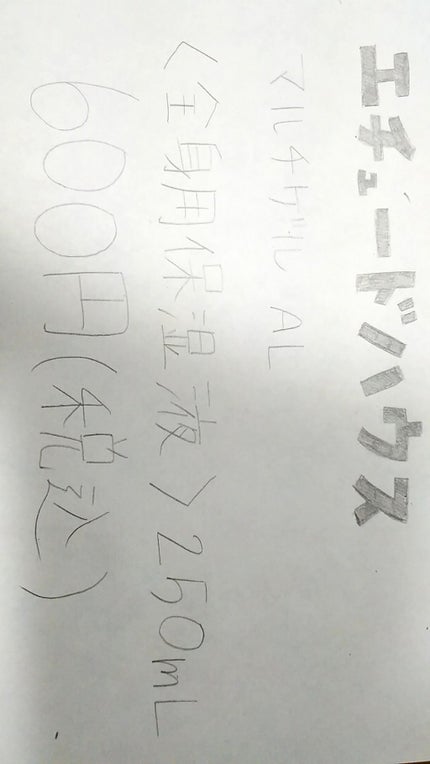 エチュードハウス
マルチゲル AL
〈全身用保湿液〉250mL
600円(税込)